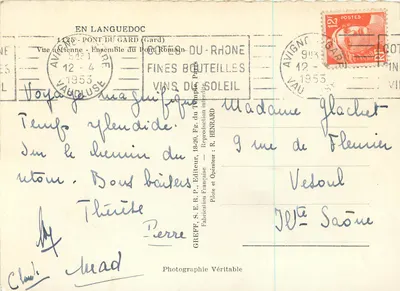 EN LANGUEDOC
1125 - PONT DU GARD (Gard)
Vue aérienne - Ensemble du Pont Romain
AVIGNON GARE
12-4
1953
VAUCLUSE
COTES-DU-RHONE
FINES BOUTEILLES
VINS DU SOLEIL
AVIGNON GARE
12-4
1953
VAUCLUSE
POSTES
Voyage magnifique
Temps splendide.
Sur le chemin du
retour. Bons baisers
Thérèse
Pierre
Claude
Mad
GREFF, S. E. R. P., Editeur,
Fabrication Française - Reproduction
Pilote et Opérateur : R. HENRARD
Madame Glachet
9 rue de Fleurier
Vesoul
Hte Saône
Photographie Véritable